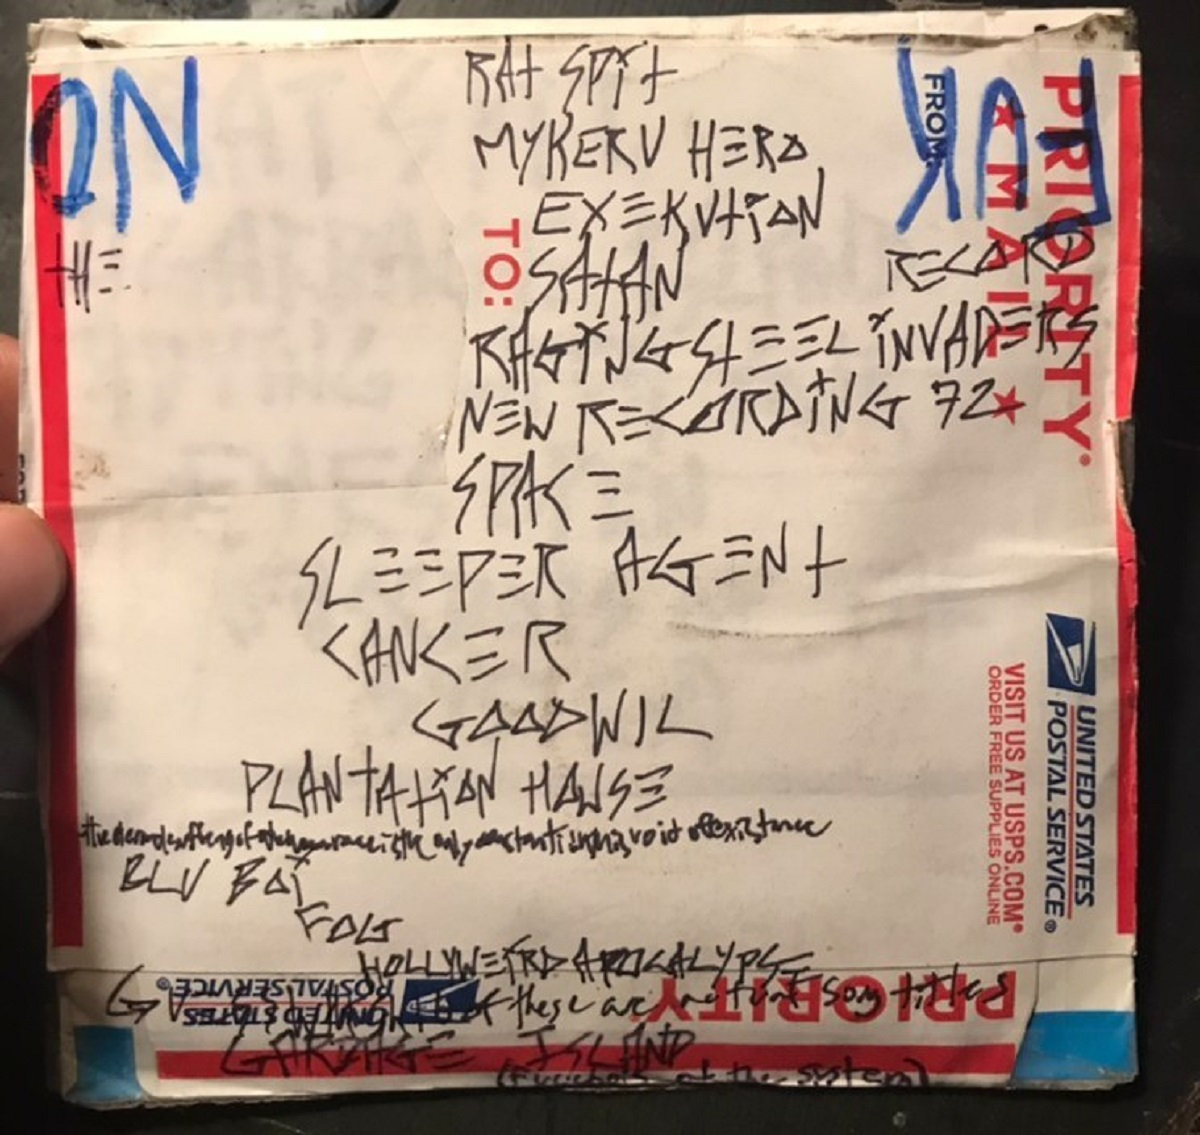 RAt SPit
MYKERV HERO
EXEKVtiON
tHE
SAtAN
RECORD
RAGiNG StEEL iNVADERS
NEW RECORDiNG 72
SPACE
SLEEPER AGENt
CANCER
GOODWIL
PLANtAtiON HOWSE
the only constant in this void of existence
BLV BOi
FOG
HOLLYWEiRD APOCALYPSE
these are not song titles
GARBAGE ISLAND
of the system)
NO
FROM:
TO:
PRIORITY®
★ MAIL ★
UNITED STATES
POSTAL SERVICE®
VISIT US AT USPS.COM®
ORDER FREE SUPPLIES ONLINE
UNITED STATES
POSTAL SERVICE®
PRIORITY